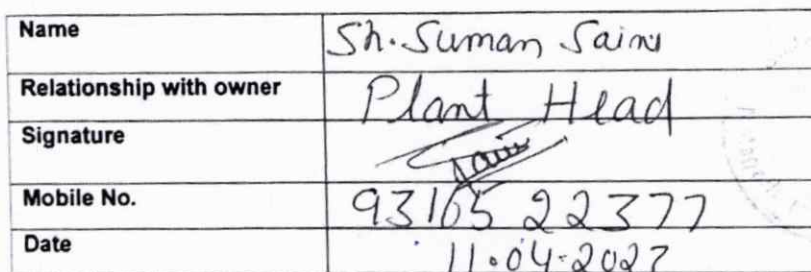 Name Sh. Suman Saini
Relationship with owner Plant Head
Signature Saini
Mobile No. 93165 22377
Date 11.04.2023